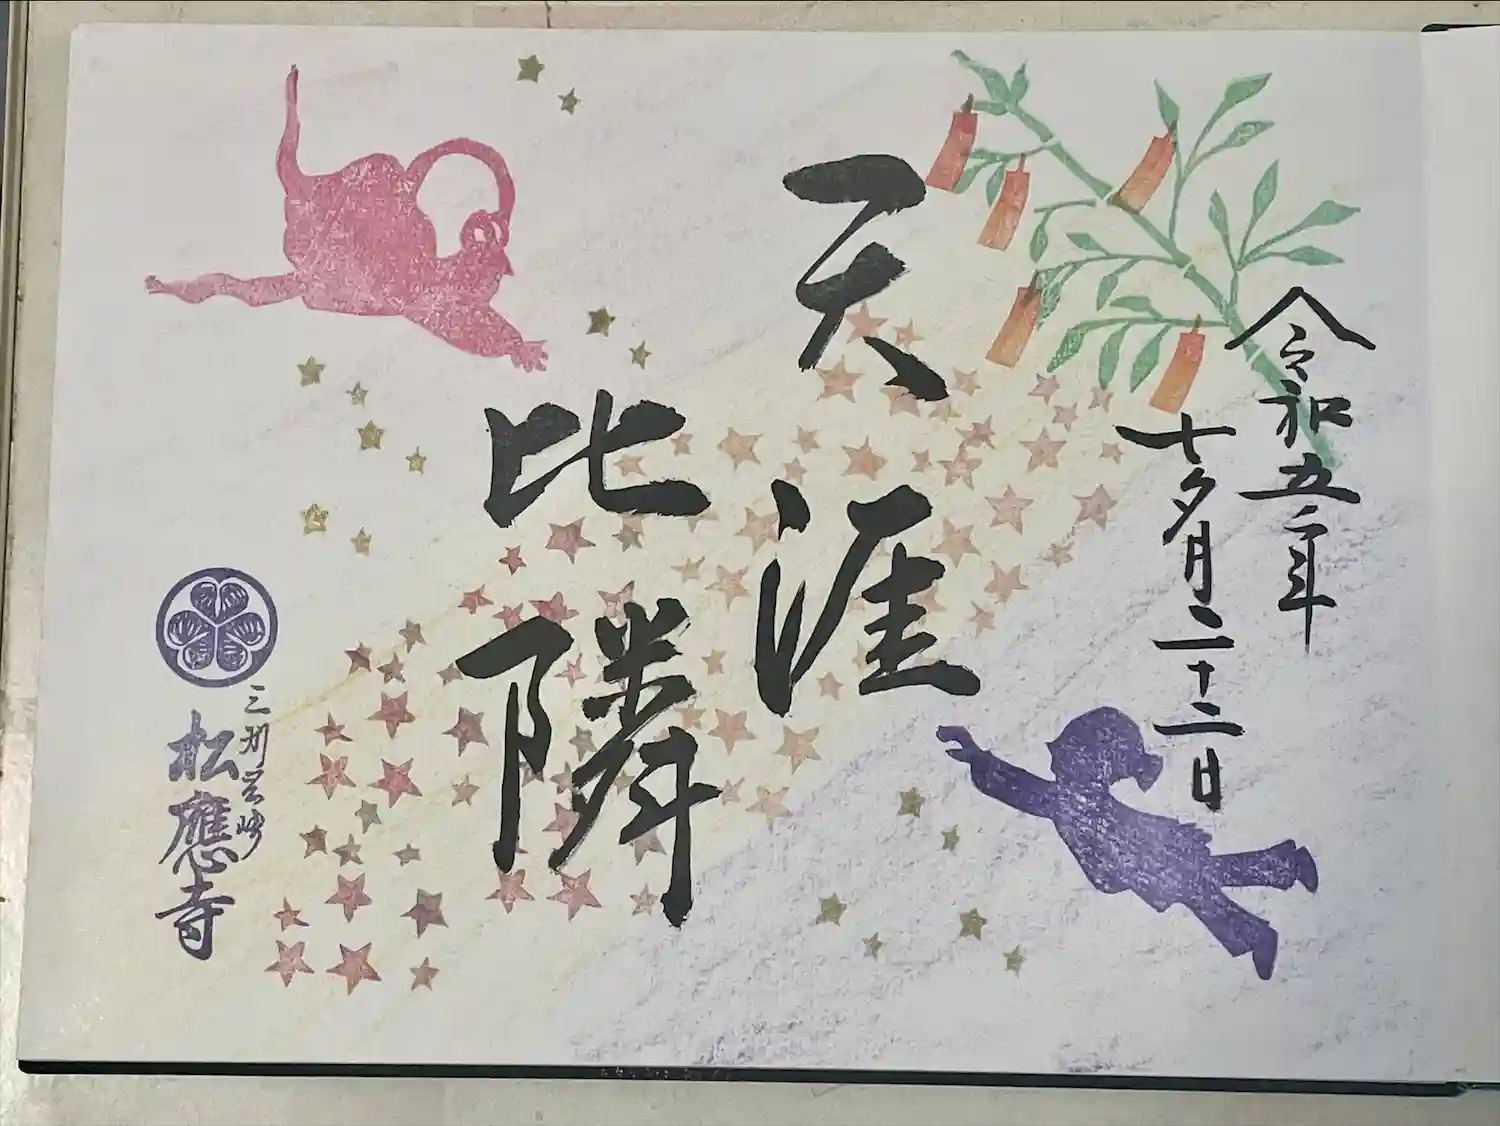 令和五年
七夕月二十二日
天涯
比隣
三州岡崎
松應寺